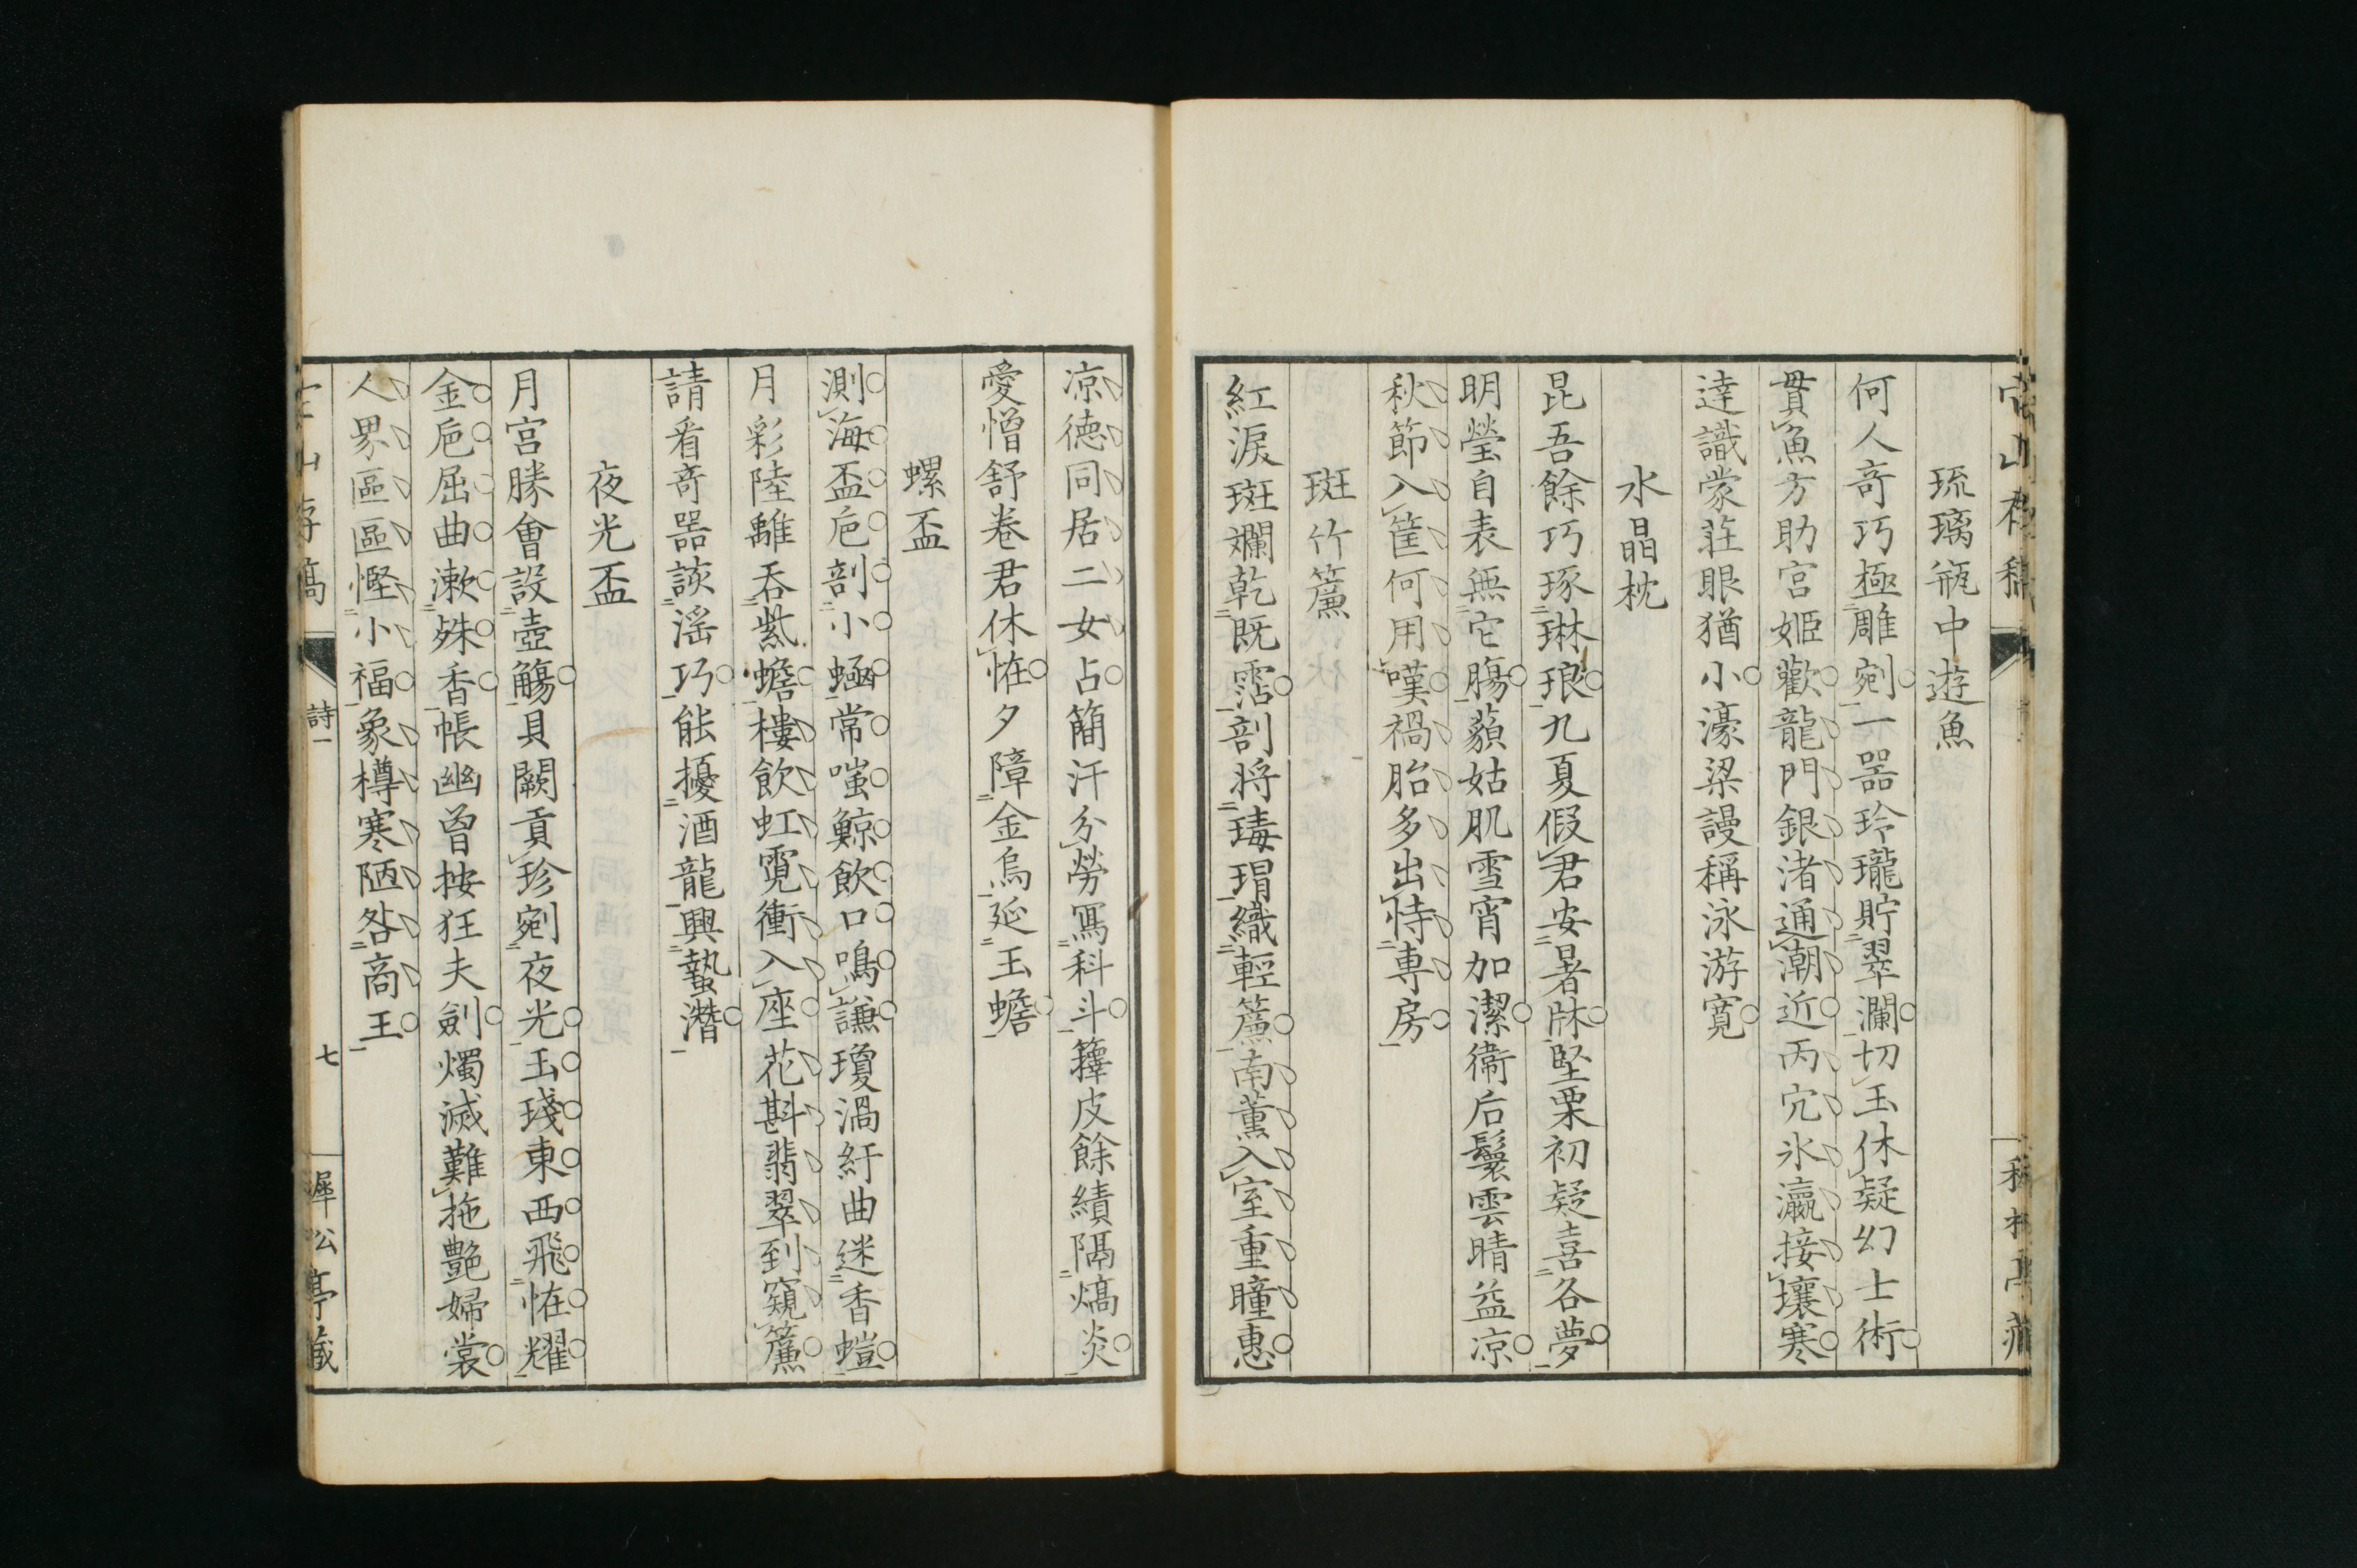 琉璃瓶中遊魚
何人竒巧極雕剜一噐玲瓏貯翠瀾切玉休疑幻士術
貫魚方助宮姬歡龍門銀渚通潮近丙穴氷瀛接壤寒
達識蒙莊眼猶小濠梁謾稱泳游寬
水晶枕
昆吾餘巧琢琳琅九夏假君安暑牀堅栗初疑喜各夢
明瑩自表無它膓藐姑肌雪宵加潔衞后鬟雲晴益凉
秋節入筐何用嘆禍胎多出恃專房
斑竹簾
紅淚斑斕乾既霑剖將瑇瑁織輕簾南薰入室重瞳惠
凉德同居二女占簡汗分勞寫科斗籜皮餘績隔熇炎
愛憎舒卷君休恠夕障金烏延玉蟾
螺盃
測海盃巵剖小蝸常嗤鯨飲口鳴謙瓊渦紆曲迷香螘
月彩陸離吞紫蟾樓飲虹霓衝入座花斟翡翠到窺簾
請看竒噐談滛巧能擾酒龍興蟄潛
夜光盃
月宮勝會設壺觴貝闕貢珍剜夜光玉琖東西飛恠耀
金巵屈曲漱殊香帳幽曾按狂夫劍燭滅難拖艶婦裳
人界區區慳小福象樽寒陋咎商王
詩一
七
犀公亭藏